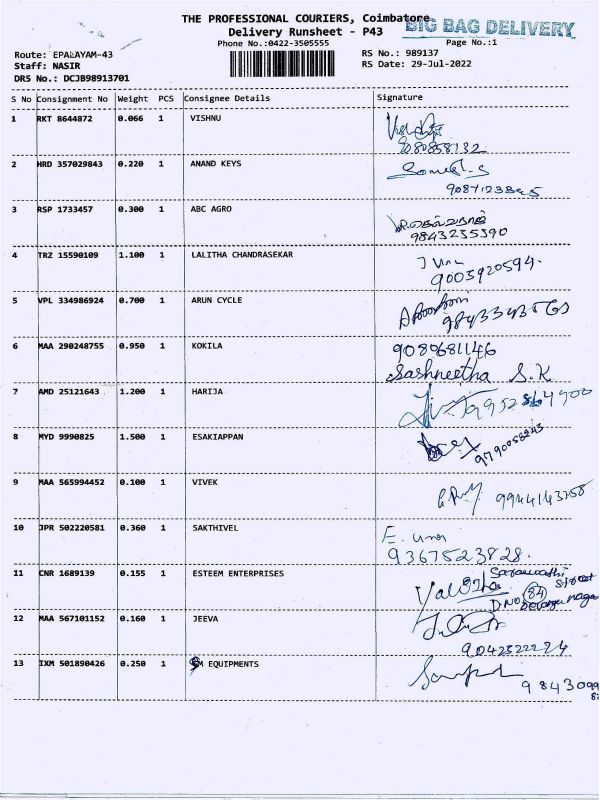 THE PROFESSIONAL COURIERS, Coimbatore
BIG BAG DELIVERY
Delivery Runsheet - P43
Phone No.:0422-3505555
Page No.:1
Route: EPALAYAM-43
RS No.: 989137
Staff: NASIR
RS Date: 29-Jul-2022
DRS No.: DCJB98913701
S No Consignment No Weight PCS Consignee Details Signature
1 RKT 8644872 0.066 1 VISHNU
9080858132
2 HRD 357029843 0.220 1 ANAND KEYS
3 RSP 1733457 0.300 1 ABC AGRO
9843235390
4 TRZ 15590109 1.100 1 LALITHA CHANDRASEKAR
9003920594.
5 VPL 334986924 0.700 1 ARUN CYCLE
6 MAA 290248755 0.950 1 KOKILA 9080681146
Sashneetha S.K
7 AMD 25121643 1.200 1 HARIJA
8 MYD 9990825 1.500 1 ESAKIAPPAN
9790058243
9 MAA 565994452 0.100 1 VIVEK
10 JPR 502220581 0.360 1 SAKTHIVEL
9367523828.
11 CNR 1689139 0.155 1 ESTEEM ENTERPRISES
Street
D.NO. 84
12 MAA 567101152 0.160 1 JEEVA
13 IXM 501890426 0.250 1 EQUIPMENTS